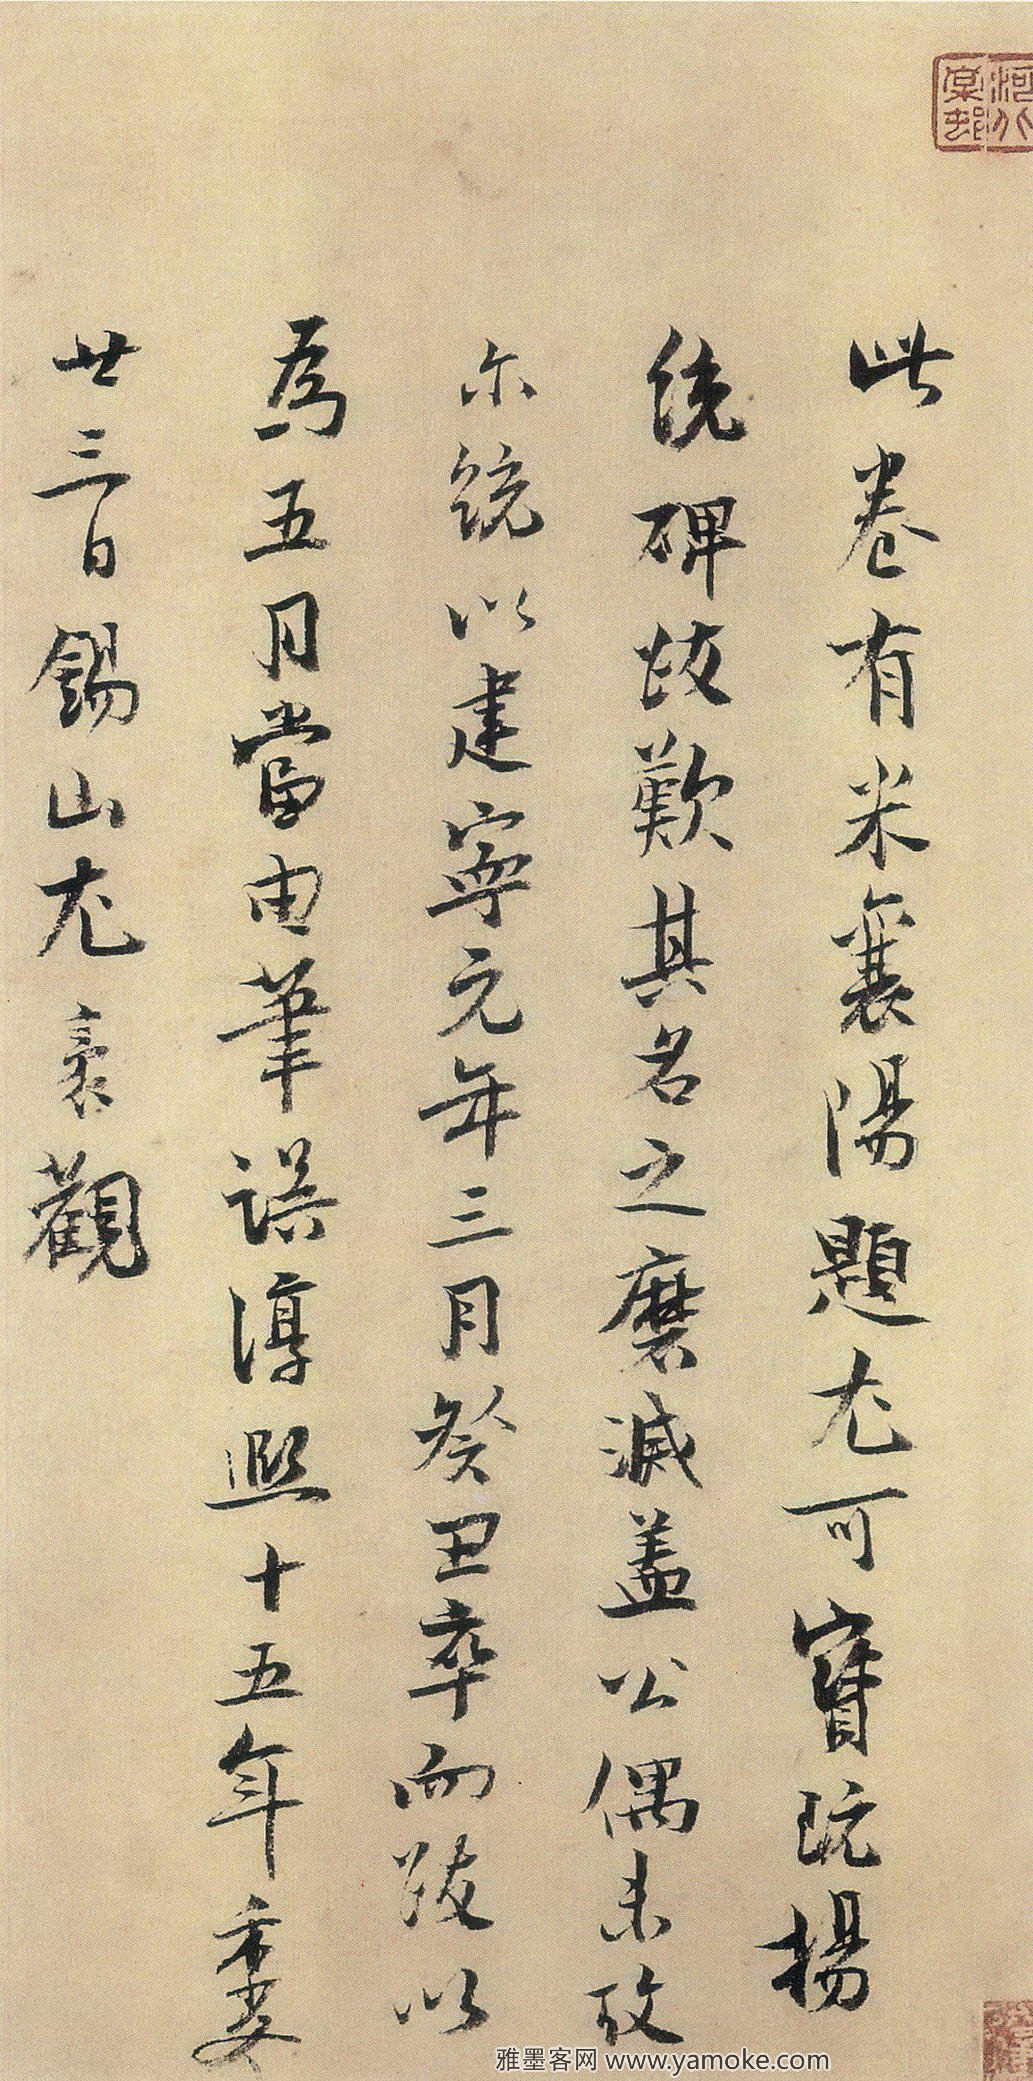 此卷有米襄陽題尤可寶玩揚
統碑跋歎其名之磨滅蓋公偶未攷
尔統以建寧元年三月癸丑卒而跋以
為五月當由筆誤淳熙十五年季夏
廿三日錫山尤袤觀
河北
棠邨
雅墨客网 www.yamoke.com